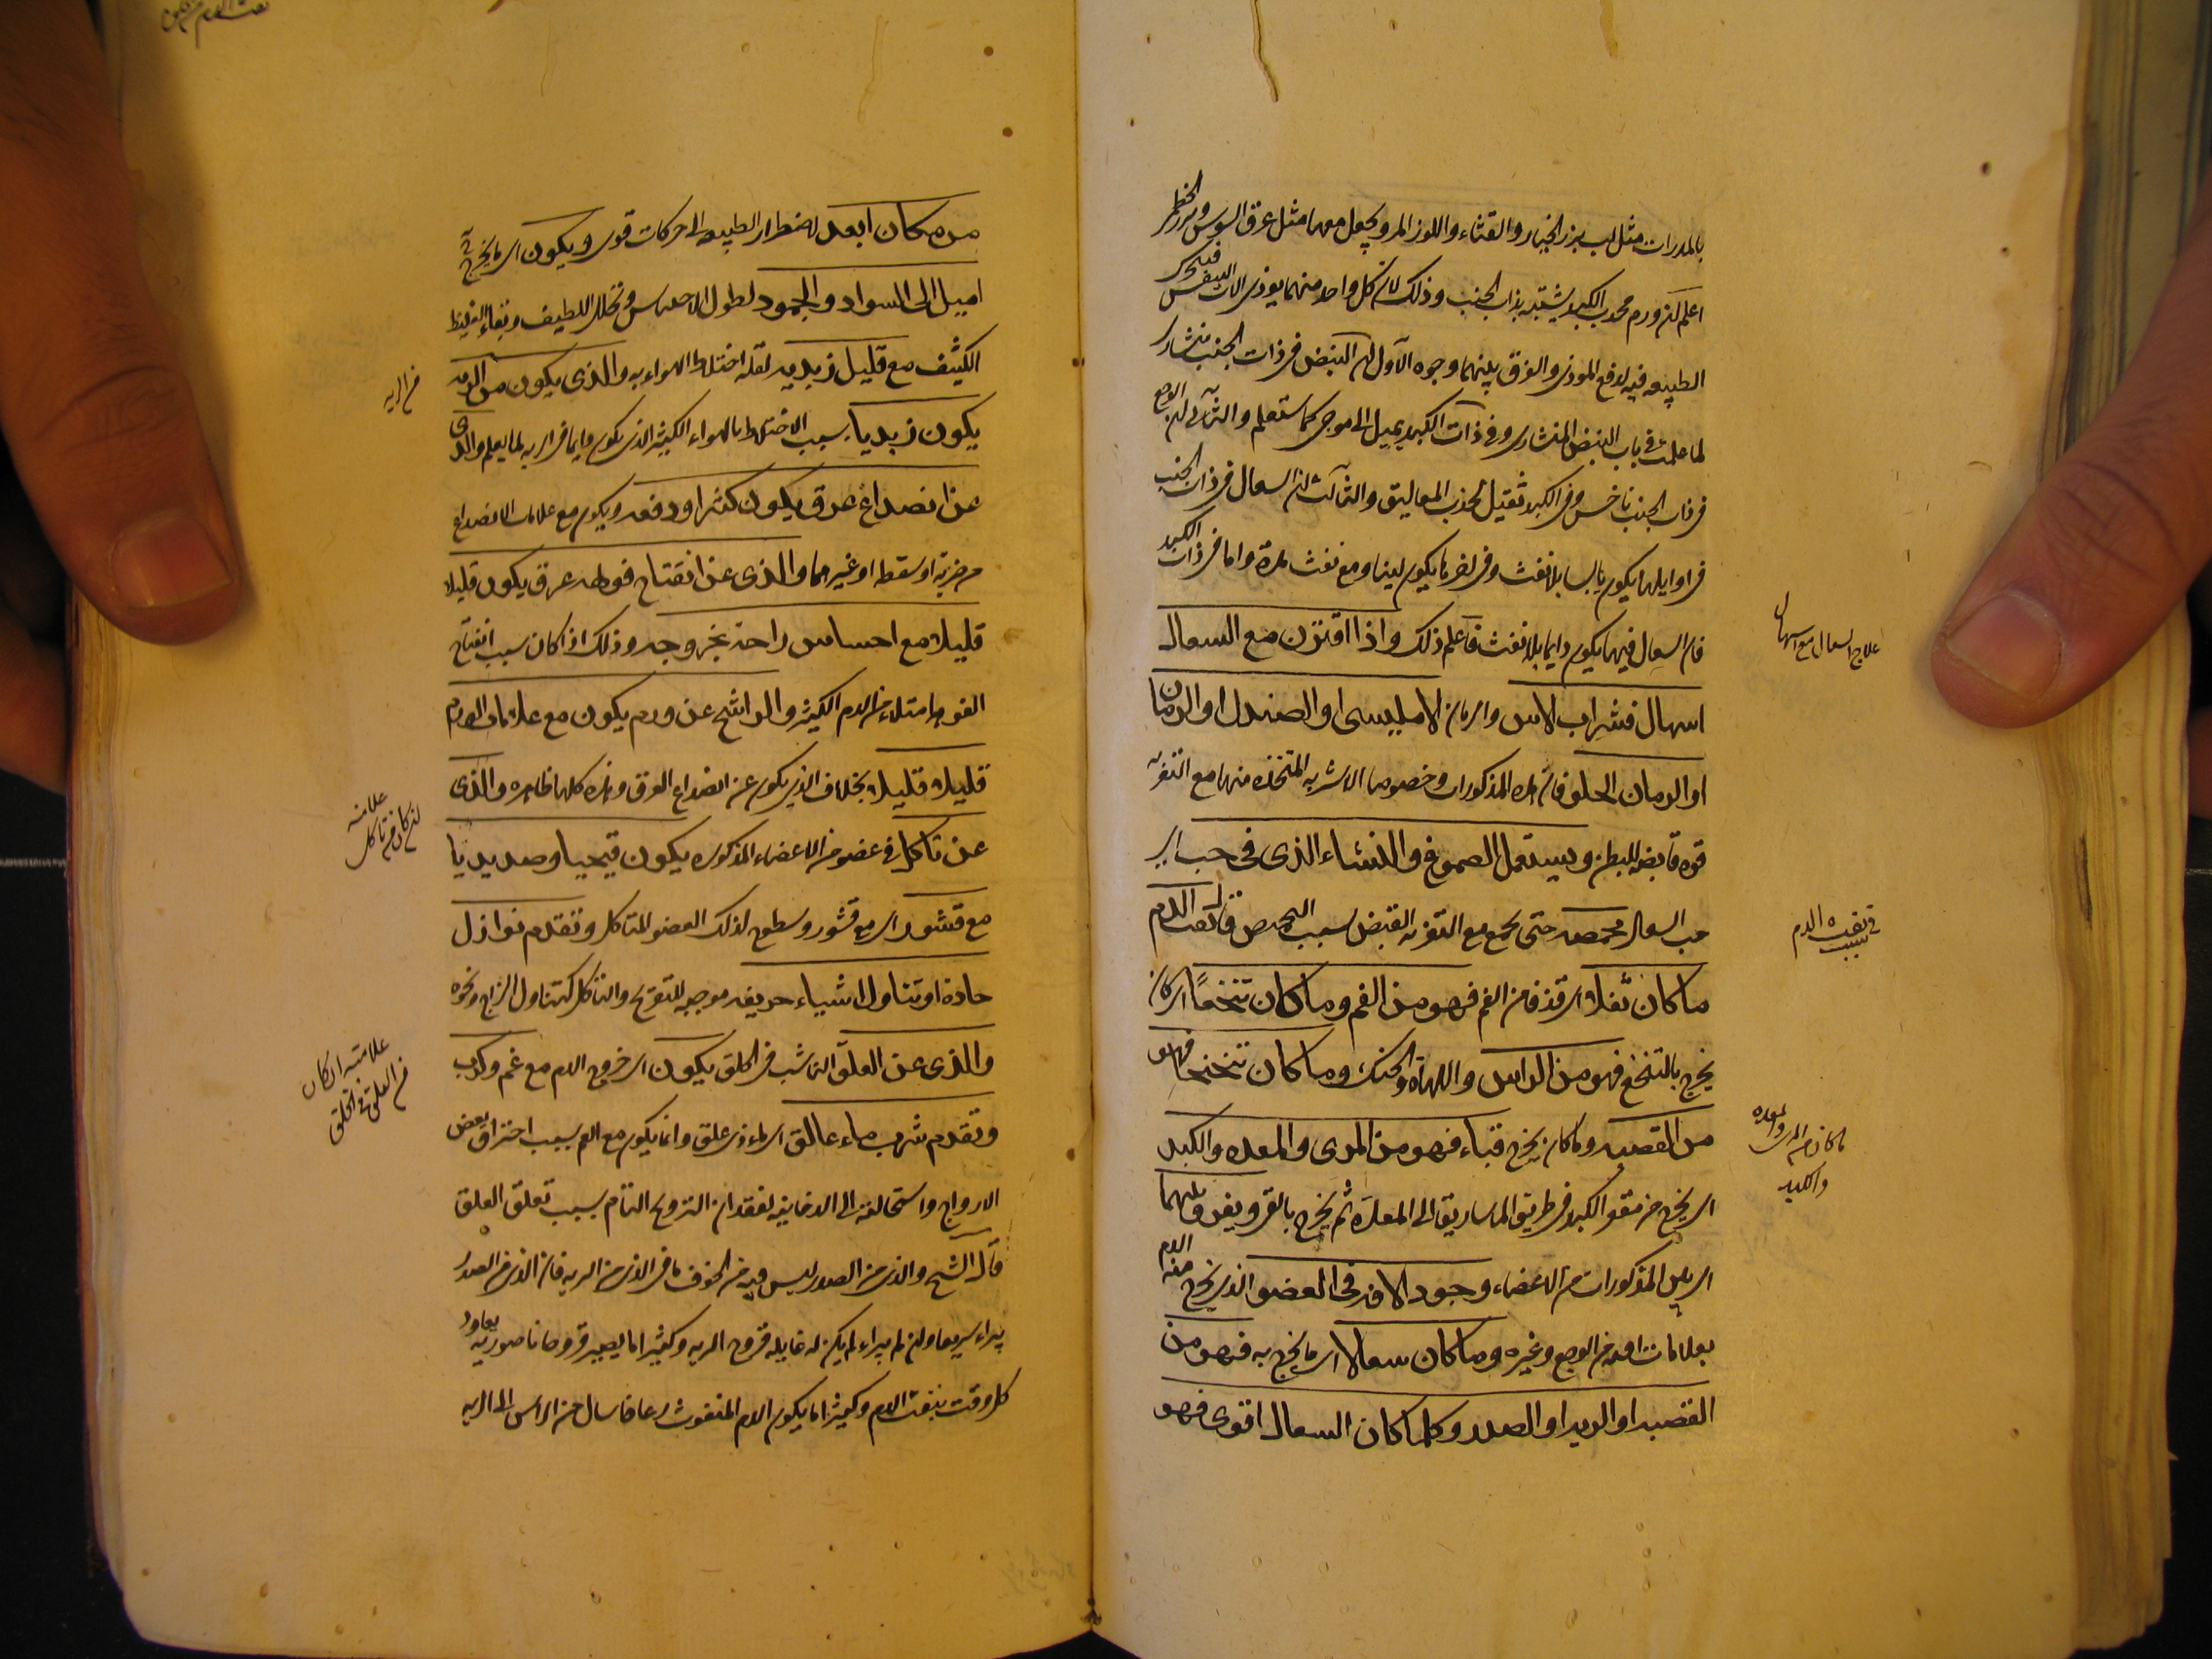 بالمدرات مثل لب بزر الخيار والقثاء واللوز المر ويجعل معها مثل عرق السوس وبزر الخطمي
اعلم ان ورم محدب الكبد يشتبه بذات الجنب وذلك لان كل واحد منهما يوذى الات التنفس فيتحرك
الطبيعه فيه لدفع الموذى والفرق بينهما وجوه الاول ان النبض فى ذات الجنب منشارى
لما علمت فى باب النبض المنشارى وفى ذات الكبد يميل الى موجى كما ستعلم والثانى ان الوجع
فى ذات الجنب ناخس وفى الكبد ثقيل لجذب المعاليق والثالث ان السعال فى ذات الجنب
فى اوايلها يكون يابسا بلا نفث وفى اخرها يكون لينا ومع نفث مدة واما فى ذات الكبد
فان السعال فيها يكون دايما بلا نفث فاعلم ذلك واذا اقترن مع السعال
اسهال فشراب الاس والرمان الامليسى او الصندل او الرمان
او الرمان الحلو فان هذه المذكورات وخصوصا الاشربه المتخذه منها مع التغريه
قوه قابضه للبطن ويستعمل الصموغ والنشاء الذى فى حب اى
حب السعال محمصه حتى يجمع مع التغريه القبض بسبب التحمص نفث الدم
ما كان تفلا اى قذفا من الفم فهو من الفم وما كان تنخعا اى كان
يخرج بالتنخع فهو من الراس واللهاة والحنك وما كان تنحنحا فهو
من القصبه وما كان يخرج قياء فهو من المرى والمعده والكبد
اى يخرج من مقعر الكبد فى طريق الماساريقا الى المعدة ثم يخرج بالقى ويفرق بينهما
اى بين المذكورات من الاعضاء وجود الافه فى العضو الذى يخرج منه الدم
بعلامات افته من الوجع وغيره وما كان سعالا اى ما يخرج به فهو من
القصبه او الريه او الصدر وكلما كان السعال اقوى فهو
علاج السعال مع اسهال
فى نفث الدم
ما كان من المرى والمعده
والكبد
من مكان ابعد لاضطرار الطبيعه الى حركات قويه ويكون اى ما يخرج
اميل الى السواد والجمود لطول الاحتباس وتحلل اللطيف وبقاء الغليظ
الكثيف مع قليل زبديه لقله اختلاط الهواء به والذى يكون من الريه
يكون زبديا بسبب الاختلاط بالهواء الكثير الذى يكون دايما فى الريه لما يعلم والذى
عن انصداع عرق يكون كثيرا ودفعه ويكون مع علامات الانصداع
من ضربه او سقطه او غيرهما والذى عن انفتاح فوهه عرق يكون قليلا
قليلا مع احساس راحه بخروجه وذلك اذا كان سبب انفتاح
الفوهه امتلاء من الدم الكثير والراشح عن ورم يكون مع علامات الورم
قليلا قليلا بخلاف الذى يكون عن انصداع العرق وهذه كلها ظاهره والذى
عن تاكل فى عضو من الاعضاء المذكوره يكون قيحيا وصديديا
مع قشور اى مع قشور وسطوح لذلك العضو المتاكل وتقدم نوازل
حادة او تناول اشياء حريفه موجبه للتقرح والتاكل كتناول الزاج ونحوه
والذى عن العلق الناشب فى الحلق يكون اى خروج الدم مع غم وكرب
وتقدم شرب ماء عالق اى ماء ذى علق وانما يكون مع الغم بسبب احتراق بعض
الارواح واستحالته الى الدخانيه لفقدان الترويح التام بسبب تعلق العلق
قال الشيخ والذى من الصدر ليس فيه من الخوف ما فى الذى من الريه فان الذى من الصدر
يبراء سريعا وان لم يبراء لم يكن له غايله قروح الريه وكثيرا ما يصير قروحا ناصوريه يعاود
كل وقت بنفث الدم وكثيرا ما يكون الدم المنفوث رعافا سال من الراس الى الريه
من الريه
علامته
ان كان من تاكل
علامته ان كان
من العلق فى الحلق